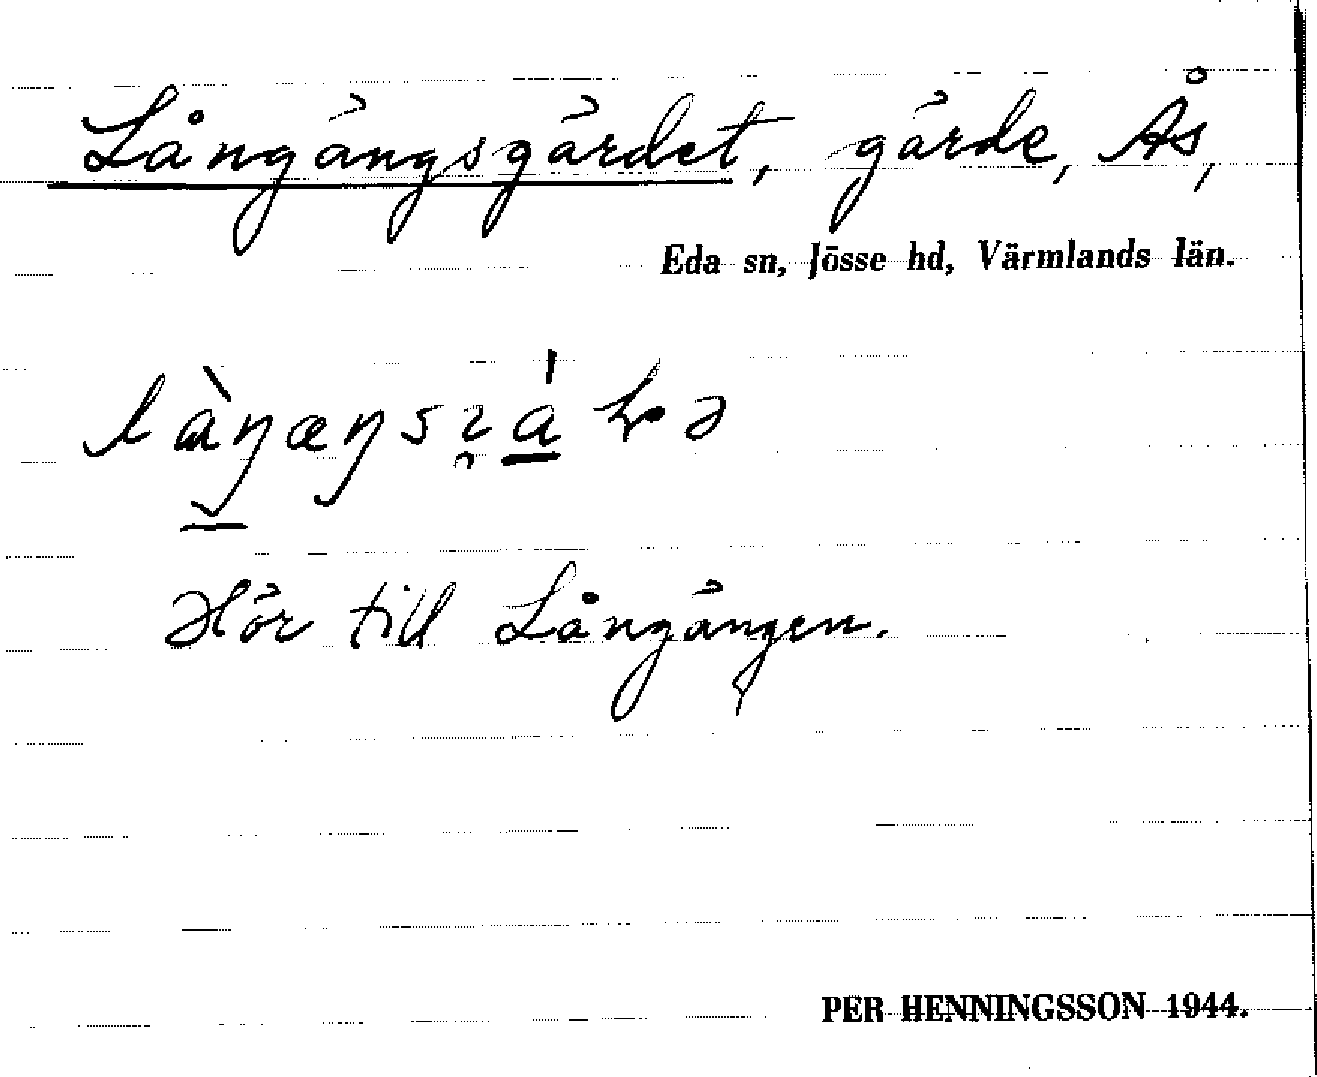 Långängsgärdet, gärde, Ås,
Eda sn, Jösse hd, Värmlands län.
Hör till Långängen.
PER HENNINGSSON 1944.